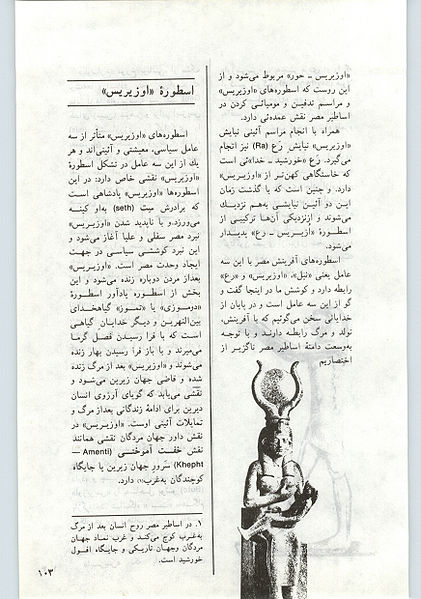 اسطورهٔ «اوزیریس»
اسطوره‌های «اوزیریس» متأثر از سه
عامل سیاسی، معیشتی و آئینی‌اند و هر
یك از این سه عامل در تشکل اسطورهٔ
«اوزیریس» نقشی خاص دارد: در این
اسطوره‌ها «اوزیریس» پادشاهی است
که برادرش سِت (seth) به‌او کینــه
می‌ورزد. و با ناپدید شدن «اوزیــریس»
نبرد مصر سفلی و علیا آغاز می‌شود و
این نبرد کوششی سیاسی در جهت
ایجاد وحدت مصر است. «اوزیریس»
بعداز مردن دوباره زنده می‌شود و این
بخش از اسطــوره یادآور اسطــورهٔ
«دوموزی» یا «تمــوز» گیاهخدای
بین‌النهریــن و دیگر خدایان گیاهی
است که با فرا رسیدن فصل گرما
می‌میرند و با باز فرا رسیدن بهار زنده
می‌شوند و «اوزیریس» بعد از مرگ زنده
شده و قاضی جهان زیرین می‌شود و
نقشی می‌یابد که گویای آرزوی انسان
دیرین برای ادامهٔ زندگانی بعداز مرگ و
تمایلات آئینی اوست. «اوزیریس» در
نقش داور جهان مردگان نقشی همانند
نقش خفت آمونتـی (Amenti —
Khepht) سَرورِ جهان زیرین یا جایگاه
کوچندگان به‌غرب(۱) دارد.
۱. در اساطیر مصر روح انسان بعد از مرگ
به‌غرب کوچ می‌کنـد و غرب نماد جهان
مردگان وجهان تاریکی و جایگاه افــول
خورشید است.
«اوزیریس ـ حور» مربوط می‌شود و از
این روست که اسطوره‌های «اوزیریس»
و مراسم تدفین و مومیائی کردن در
اساطیر مصر نقش عمده‌ئی دارد.
همراه با انجام مراسم آئینی نیایش
«اوزیریس» نیایش رَع (Ra) نیز انجام
می‌گیرد. رَع «خورشید ـ خدا»ئی است
که خاستگاهی کهن‌تر از «اوزیــریس»
دارد. و چنین است که با گذشت زمان
این دو آئین نیایشی به‌هم نزدیك
می‌شوند و ازنزدیکی آن‌ها ترکیبی از
اسطــورهٔ «اُزیــریس ـ رع» پدیــدار
می‌شود.
اسطوره‌های آفرینش مصر با این سه
عامل یعنی «نیل»، «اوزیریس» و «رع»
رابطه دارد و کوشش ما در اینجا گفت و
گو از این سه عامل است و در پایان از
خدایانی سخن می‌گوئیم که با آفرینش،
تولد و مرگ رابطــه دارنــد و با توجــه
به‌وسعت دامنهٔ اساطیر مصر ناگزیر از
اختصاریم
۱۰۳